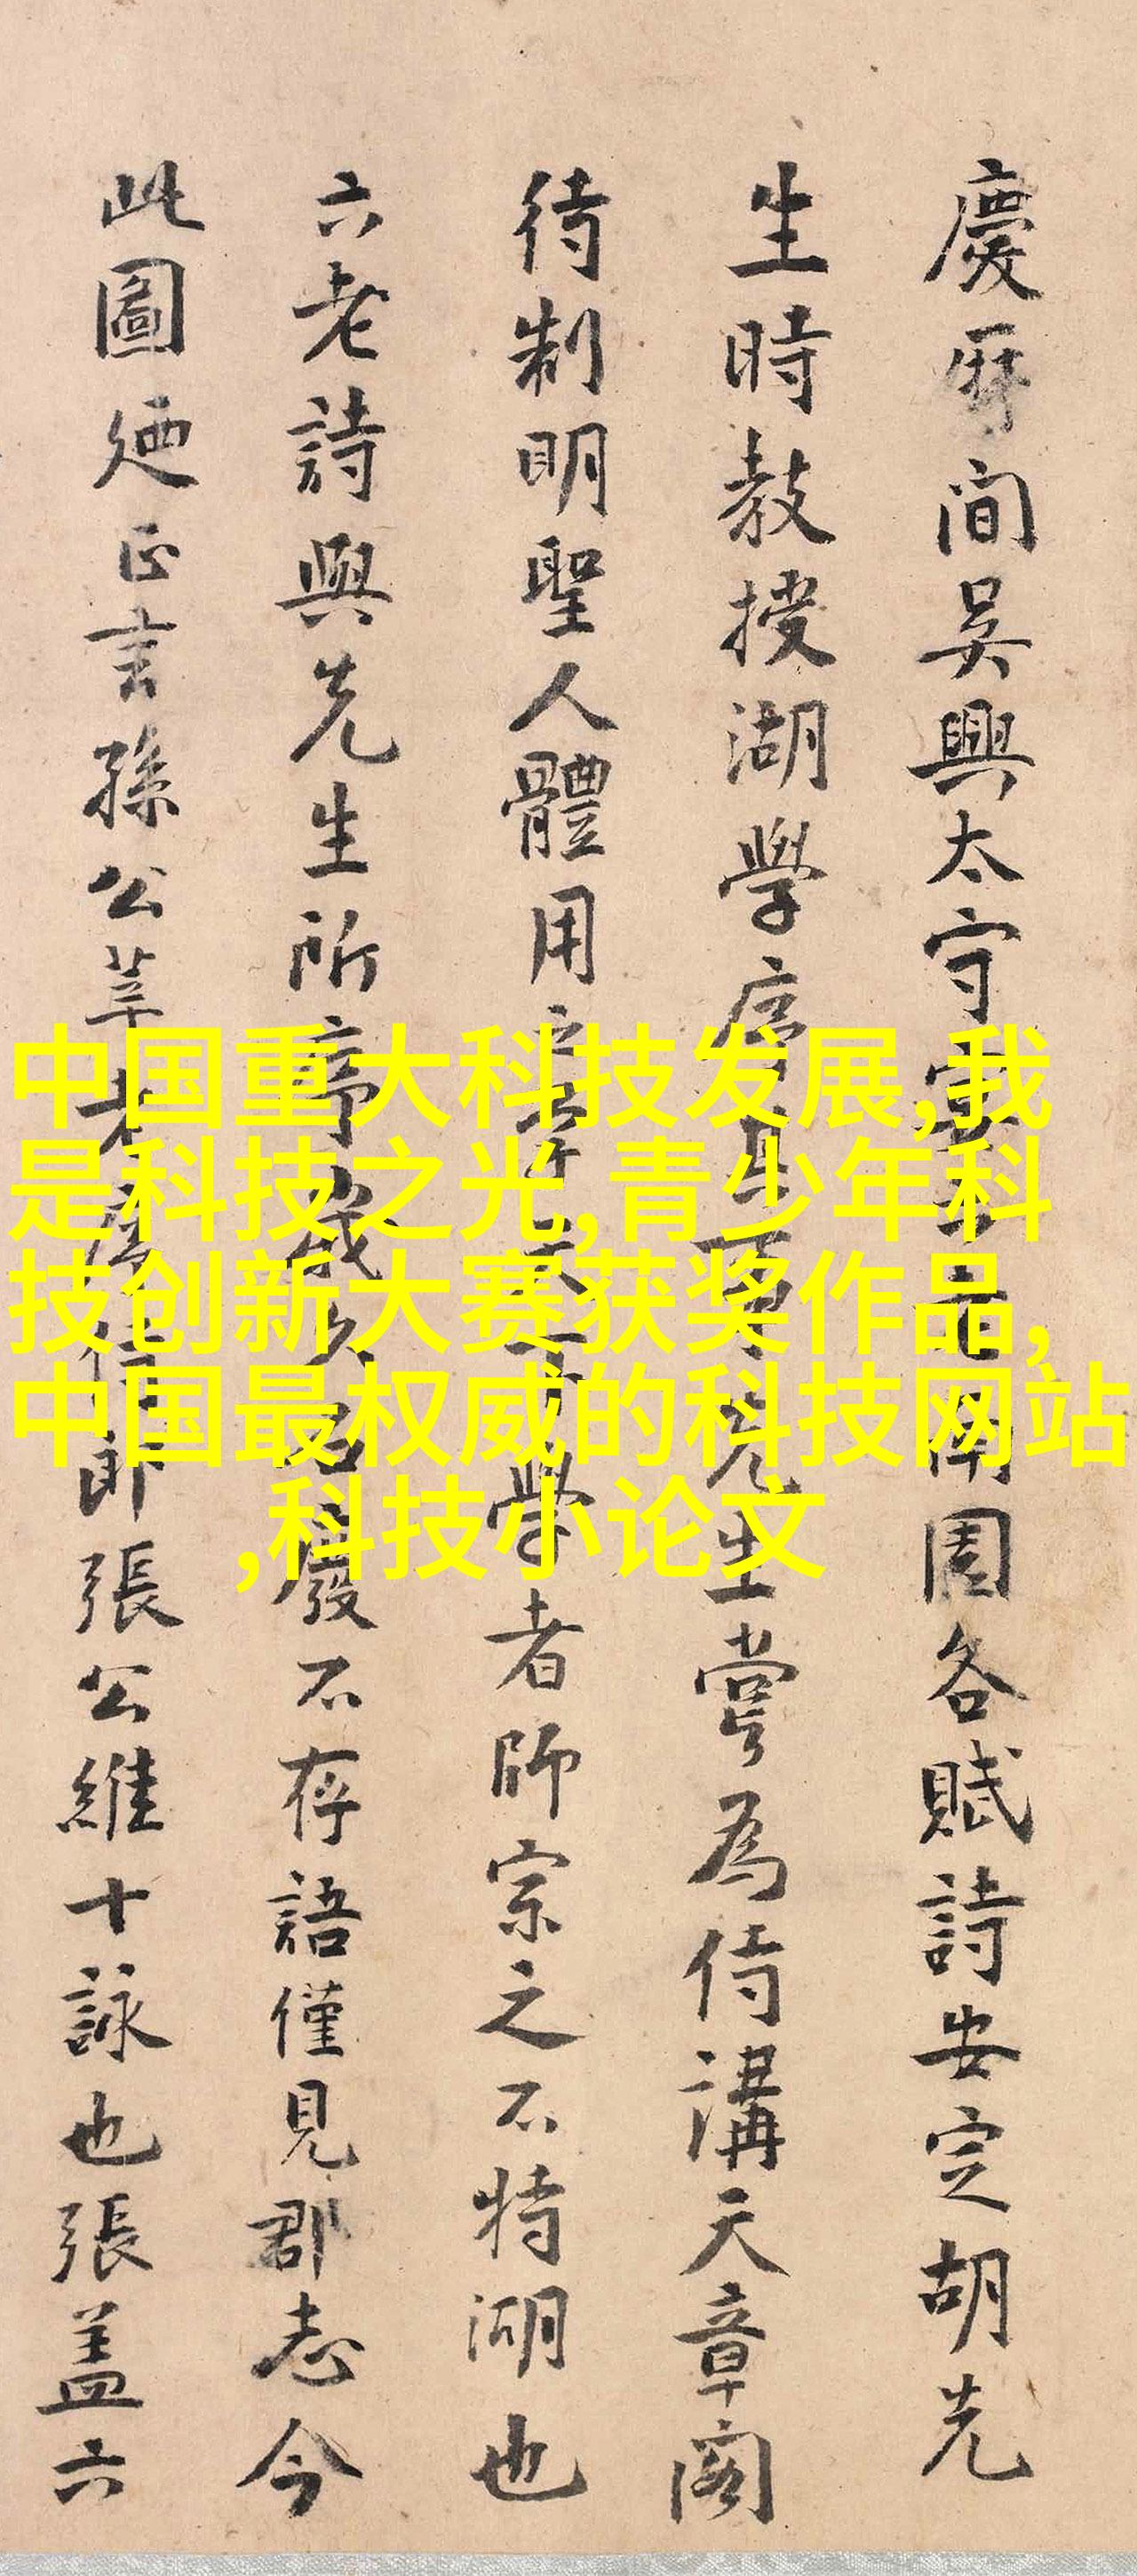 慶曆間吳興太守宴六老南園各賦詩安定胡先
生時教授湖學序其首先生嘗為侍講天章閣
待制明聖人體用之學者師宗之不特湖也
六老詩與先生所序歲久石廢不存語僅見郡志今
此圖廼正言孫公莘老侍郎張公維十詠也張蓋六
中国重大科技发展,我
是科技之光,青少年科
技创新大赛获奖作品,
中国最权威的科技网站
,科技小论文